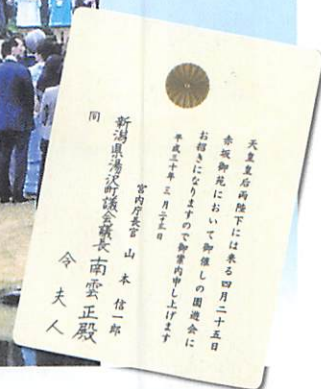 天皇皇后両陛下には来る四月二十五日
赤坂御苑において御催しの園遊会に
お招きになりますので御案内申し上げます
平成三十年三月二十三日
宮内庁長官 山本信一郎
新潟県湯沢町議会議長 南雲正殿
同 令夫人